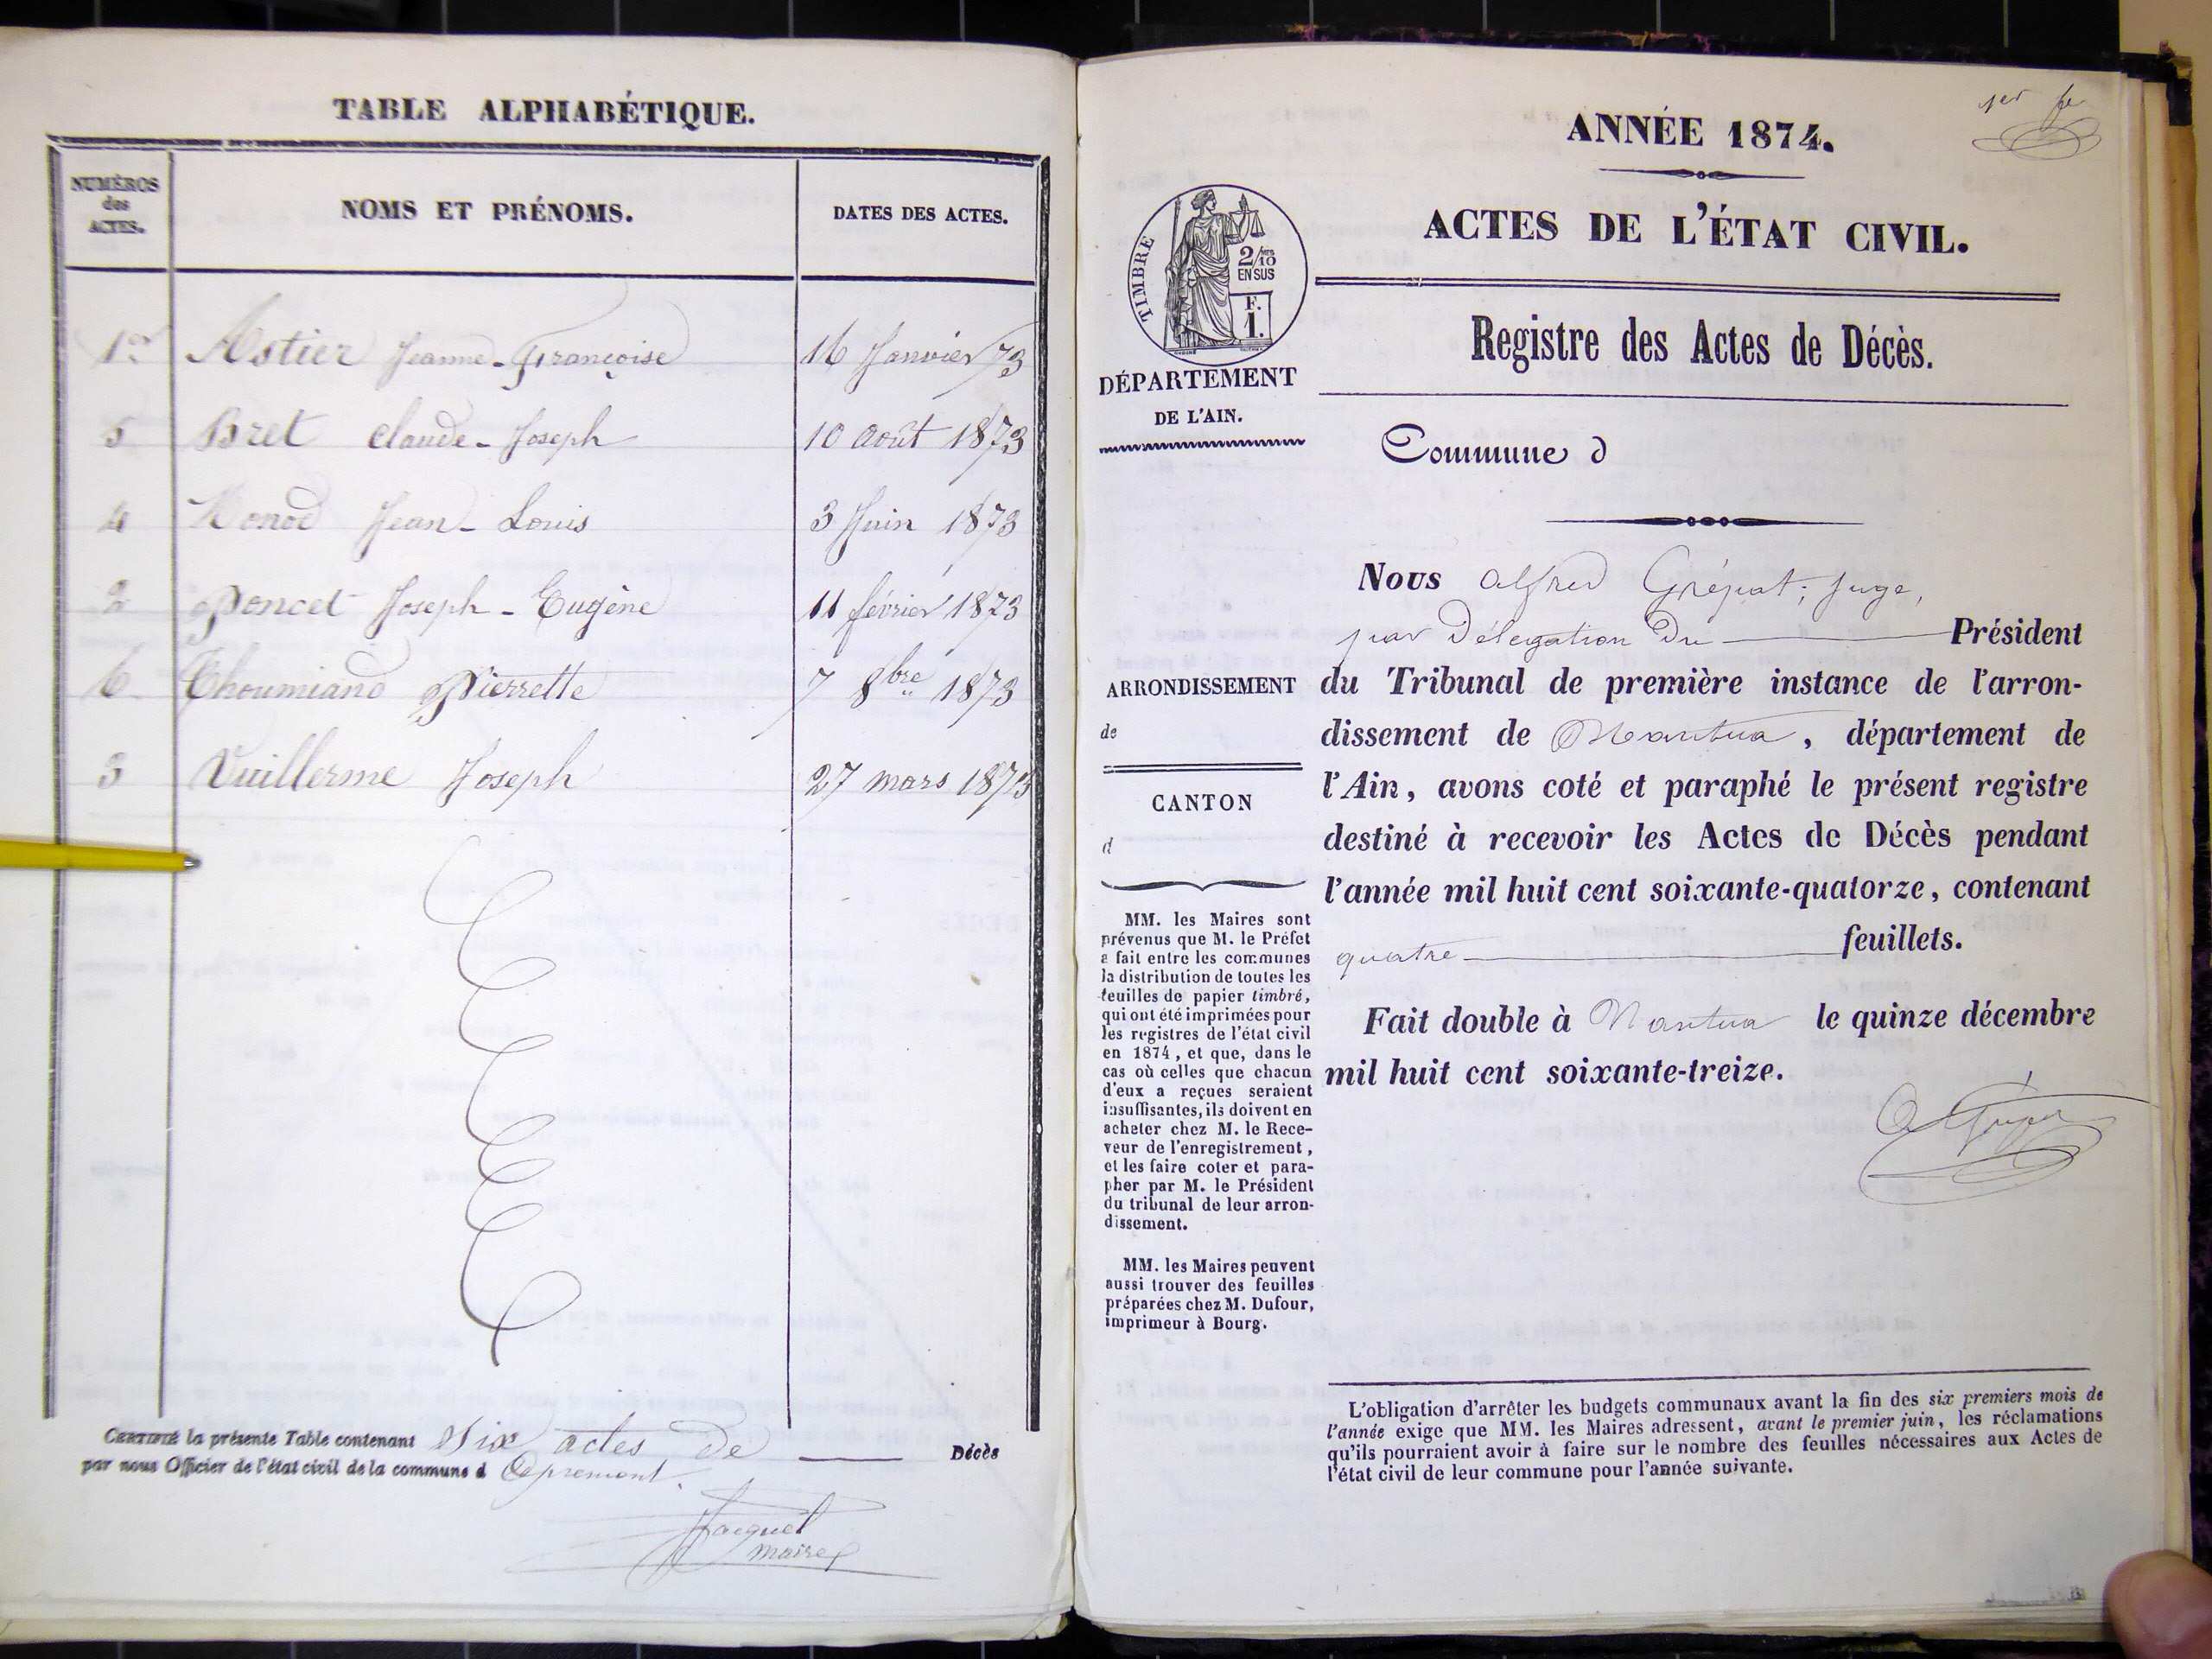 TABLE ALPHABÉTIQUE.
NUMÉROS des ACTES. NOMS ET PRÉNOMS. DATES DES ACTES.
1er Astier Jeanne-Françoise 16 Janvier 73
5 Bret Claude-Joseph 10 août 1873
4 Monod Jean-Louis 3 Juin 1873
2 Poncet Joseph-Eugène 11 février 1873
6 Choumiand Pierrette 7 8bre 1873
3 Vuillerme Joseph 27 mars 1873
CERTIFIÉ la présente Table contenant Six actes de Décès
par nous Officier de l'état civil de la commune d Apremont.
Jacquet
maire
1er fe
ANNÉE 1874.
ACTES DE L'ÉTAT CIVIL.
TIMBRE
2/10
EN SUS
F.
1.
DÉPARTEMENT
DE L'AIN.
Registre des Actes de Décès.
Commune d
Nous Alfred Grépat, juge,
par Délégation Du Président
du Tribunal de première instance de l'arron-
dissement de Nantua, département de
l'Ain, avons coté et paraphé le présent registre
destiné à recevoir les Actes de Décès pendant
l'année mil huit cent soixante-quatorze, contenant
quatre feuillets.
Fait double à Nantua le quinze décembre
mil huit cent soixante-treize.
ARRONDISSEMENT
de
CANTON
d
MM. les Maires sont
prévenus que M. le Préfet
a fait entre les communes
la distribution de toutes les
feuilles de papier timbré,
qui ont été imprimées pour
les registres de l'état civil
en 1874, et que, dans le
cas où celles que chacun
d'eux a reçues seraient
insuffisantes, ils doivent en
acheter chez M. le Rece-
veur de l'enregistrement,
et les faire coter et para-
pher par M. le Président
du tribunal de leur arron-
dissement.
MM. les Maires peuvent
aussi trouver des feuilles
préparées chez M. Dufour,
imprimeur à Bourg.
L'obligation d'arrêter les budgets communaux avant la fin des six premiers mois de
l'année exige que MM. les Maires adressent, avant le premier juin, les réclamations
qu'ils pourraient avoir à faire sur le nombre des feuilles nécessaires aux Actes de
l'état civil de leur commune pour l'année suivante.